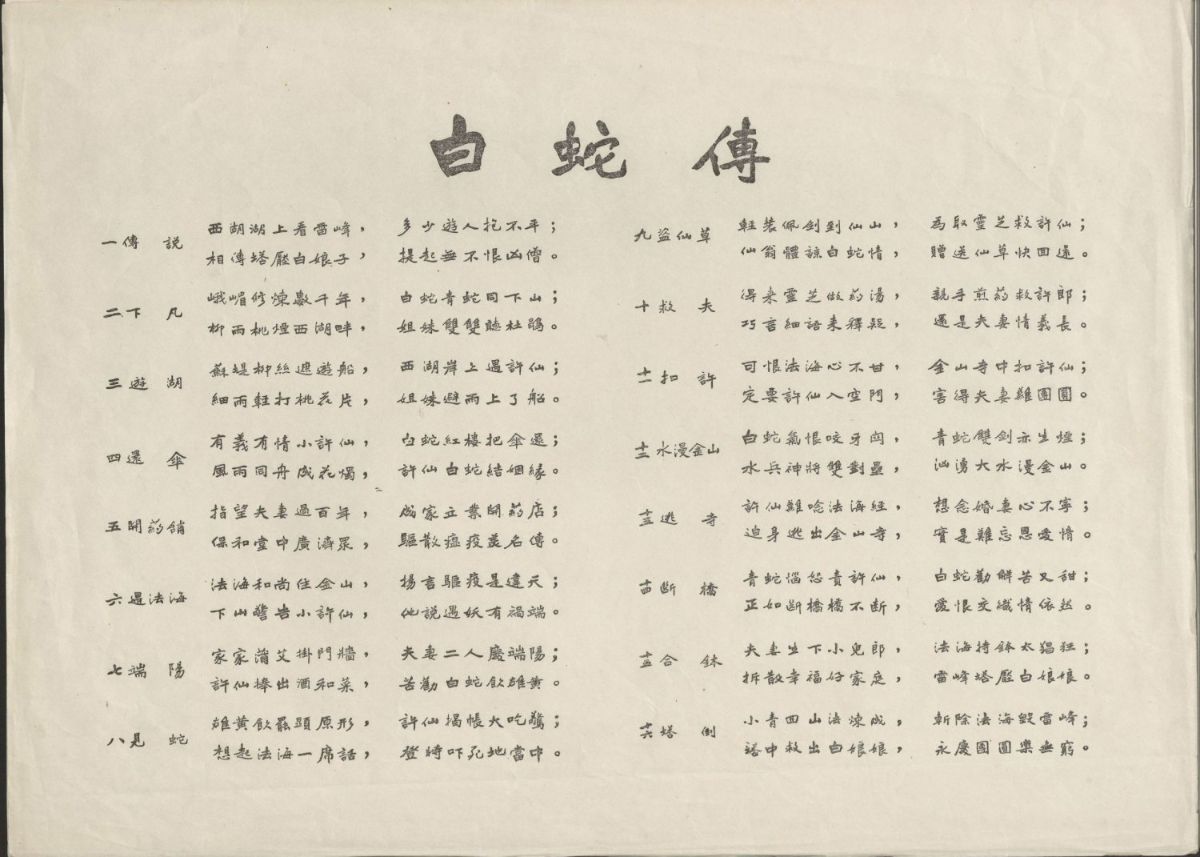 白蛇傳
一傳說
西湖湖上看雷峰，多少遊人抱不平；
相傳塔壓白娘子，提起無不恨凶僧。
二下凡
峨嵋修煉數千年，白蛇青蛇同下山；
柳雨桃煙西湖畔，姐妹雙雙聽杜鵑。
三遊湖
蘇堤柳絲遮遊船，西湖岸上遇許仙；
細雨輕打桃花片，姐妹避雨上了船。
四還傘
有義有情小許仙，白蛇紅樓把傘還；
風雨同舟成花燭，許仙白蛇結姻緣。
五開葯舖
指望夫妻過百年，成家立業開葯店；
保和堂中廣濟眾，驅散瘟疫美名傳。
六遇法海
法海和尚住金山，揚言驅疫是違天；
下山警告小許仙，他說遇妖有禍端。
七端陽
家家蒲艾掛門牆，夫妻二人慶端陽；
許仙捧出酒和菜，苦勸白蛇飲雄黃。
八見蛇
雄黃飲罷顯原形，許仙揭帳大吃驚；
想起法海一席話，登時吓死地當中。
九盜仙草
輕裝佩劍到仙山，為取靈芝救許仙；
仙翁體諒白蛇情，贈送仙草快回還。
十救夫
得來靈芝做葯湯，親手煎葯救許郎；
巧言細語來釋疑，還是夫妻情義長。
十一扣許
可恨法海心不甘，金山寺中扣許仙；
定要許仙入空門，害得夫妻難團圓。
十二水漫金山
白蛇氣恨咬牙關，青蛇雙劍亦生煙；
水兵神將雙對壘，汹湧大水漫金山。
十三逃寺
許仙難唸法海經，想念婚妻心不寧；
迫身逃出金山寺，實是難忘恩愛情。
十四斷橋
青蛇惱怒責許仙，白蛇勸解苦又甜；
正如斷橋橋不斷，愛恨交織情依然。
十五合鉢
夫妻生下小兒郎，法海持鉢太猖狂；
拆散幸福好家庭，雷峰塔壓白娘娘。
十六塔倒
小青四山法煉成，斬除法海毀雷峰；
塔中救出白娘娘，永慶團圓樂無窮。